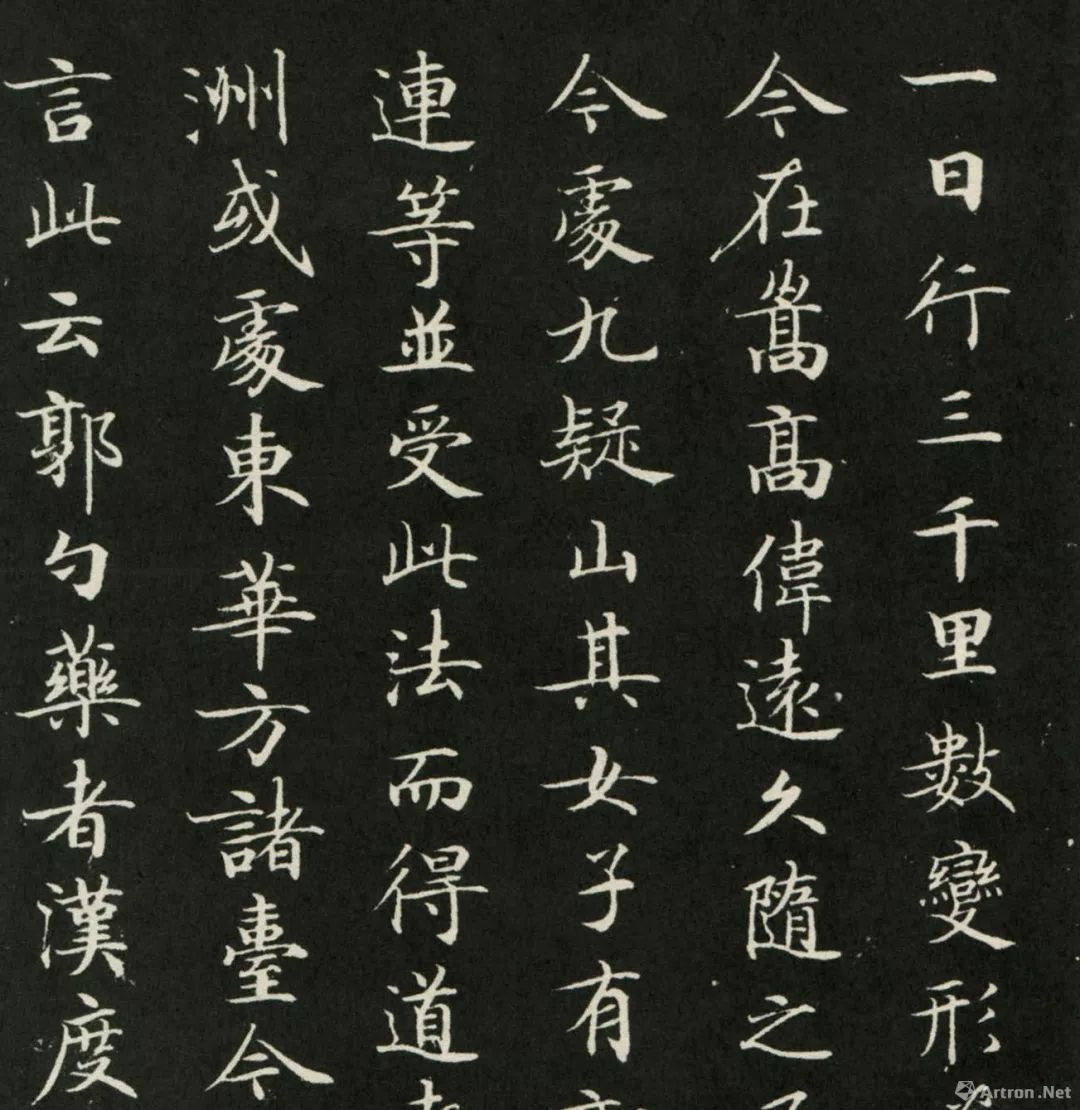 一日行三千里數變形
今在嵩高偉遠久隨之
今處九疑山其女子有
連等並受此法而得道
洲或處東華方諸臺今
言此云郭勺藥者漢度
Artron.Net